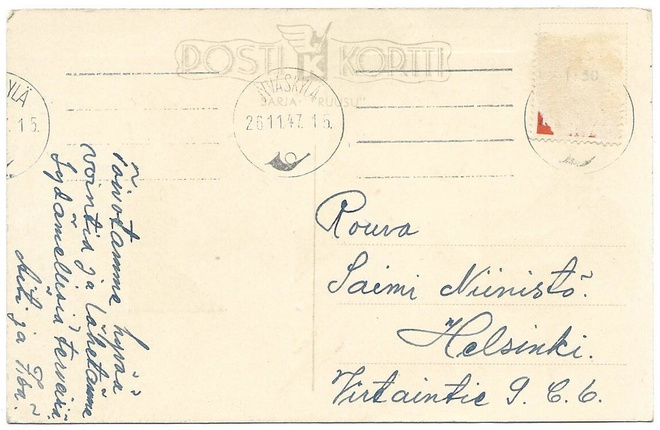 POSTI K KORTTI
YLÄ
15.
JYVÄSKYLÄ
SARJA "RUUSU"
26.11.47.15.
1:50
Toivotamme hyvää
vointia ja lähetämme
Sydämellisiä terveisiä
Äiti ja
Rouva
Saimi Niinistö.
Helsinki.
Virtaintie 9. C. 6.